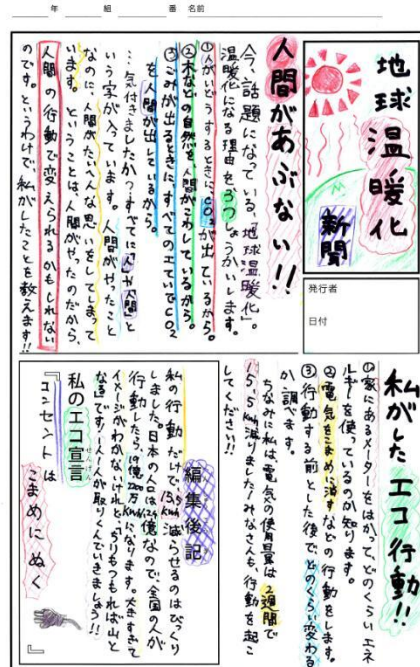 年 組 番 名前
地球
温暖化
新聞
発行者
日付
人間があぶない!!
今、話題になっている、「地球温暖化」。
温暖化になる理由を3つしょうかいします。
①人がいどうするときに、CO₂が出ているから。
②木などの自然を、人間がこわしているから。
③ごみが出るときに、すべてのエていでCO₂
を人間が出しているから。
…気付きましたか?すべてに「人」や「人間」と
いう字が入っています。人間がやったこと
なのに、人間がたいへんな思いをしてしまって
います。ということは、人間がやったのだから、
人間の行動で変えられるかもしれない
のです。というわけで、私がしたことを教えます!!
私がしたエコ行動!!
①家にあるメーターをはかって、どのくらいエネ
ルギーを使っているのか知ります。
②電気をこまめに消すなどの行動をします。
③行動する前とした後で、どのくらい変わる
か調べます。
ちなみに私は、電気の使用量は2週間で
15.5kwh減りました!みなさんも、行動を起こ
してください!!
編集後記
私の行動だけで、15.5kwh減らせるのはびっくり
しました。日本の人は
行動したら、
イメージがわかないけれど、ちりもつもれば山と
なるです!一人一人が取りくんでいきましょう!!
私のエコ宣言
せんげん
『コンセントは
こまめにぬく
』